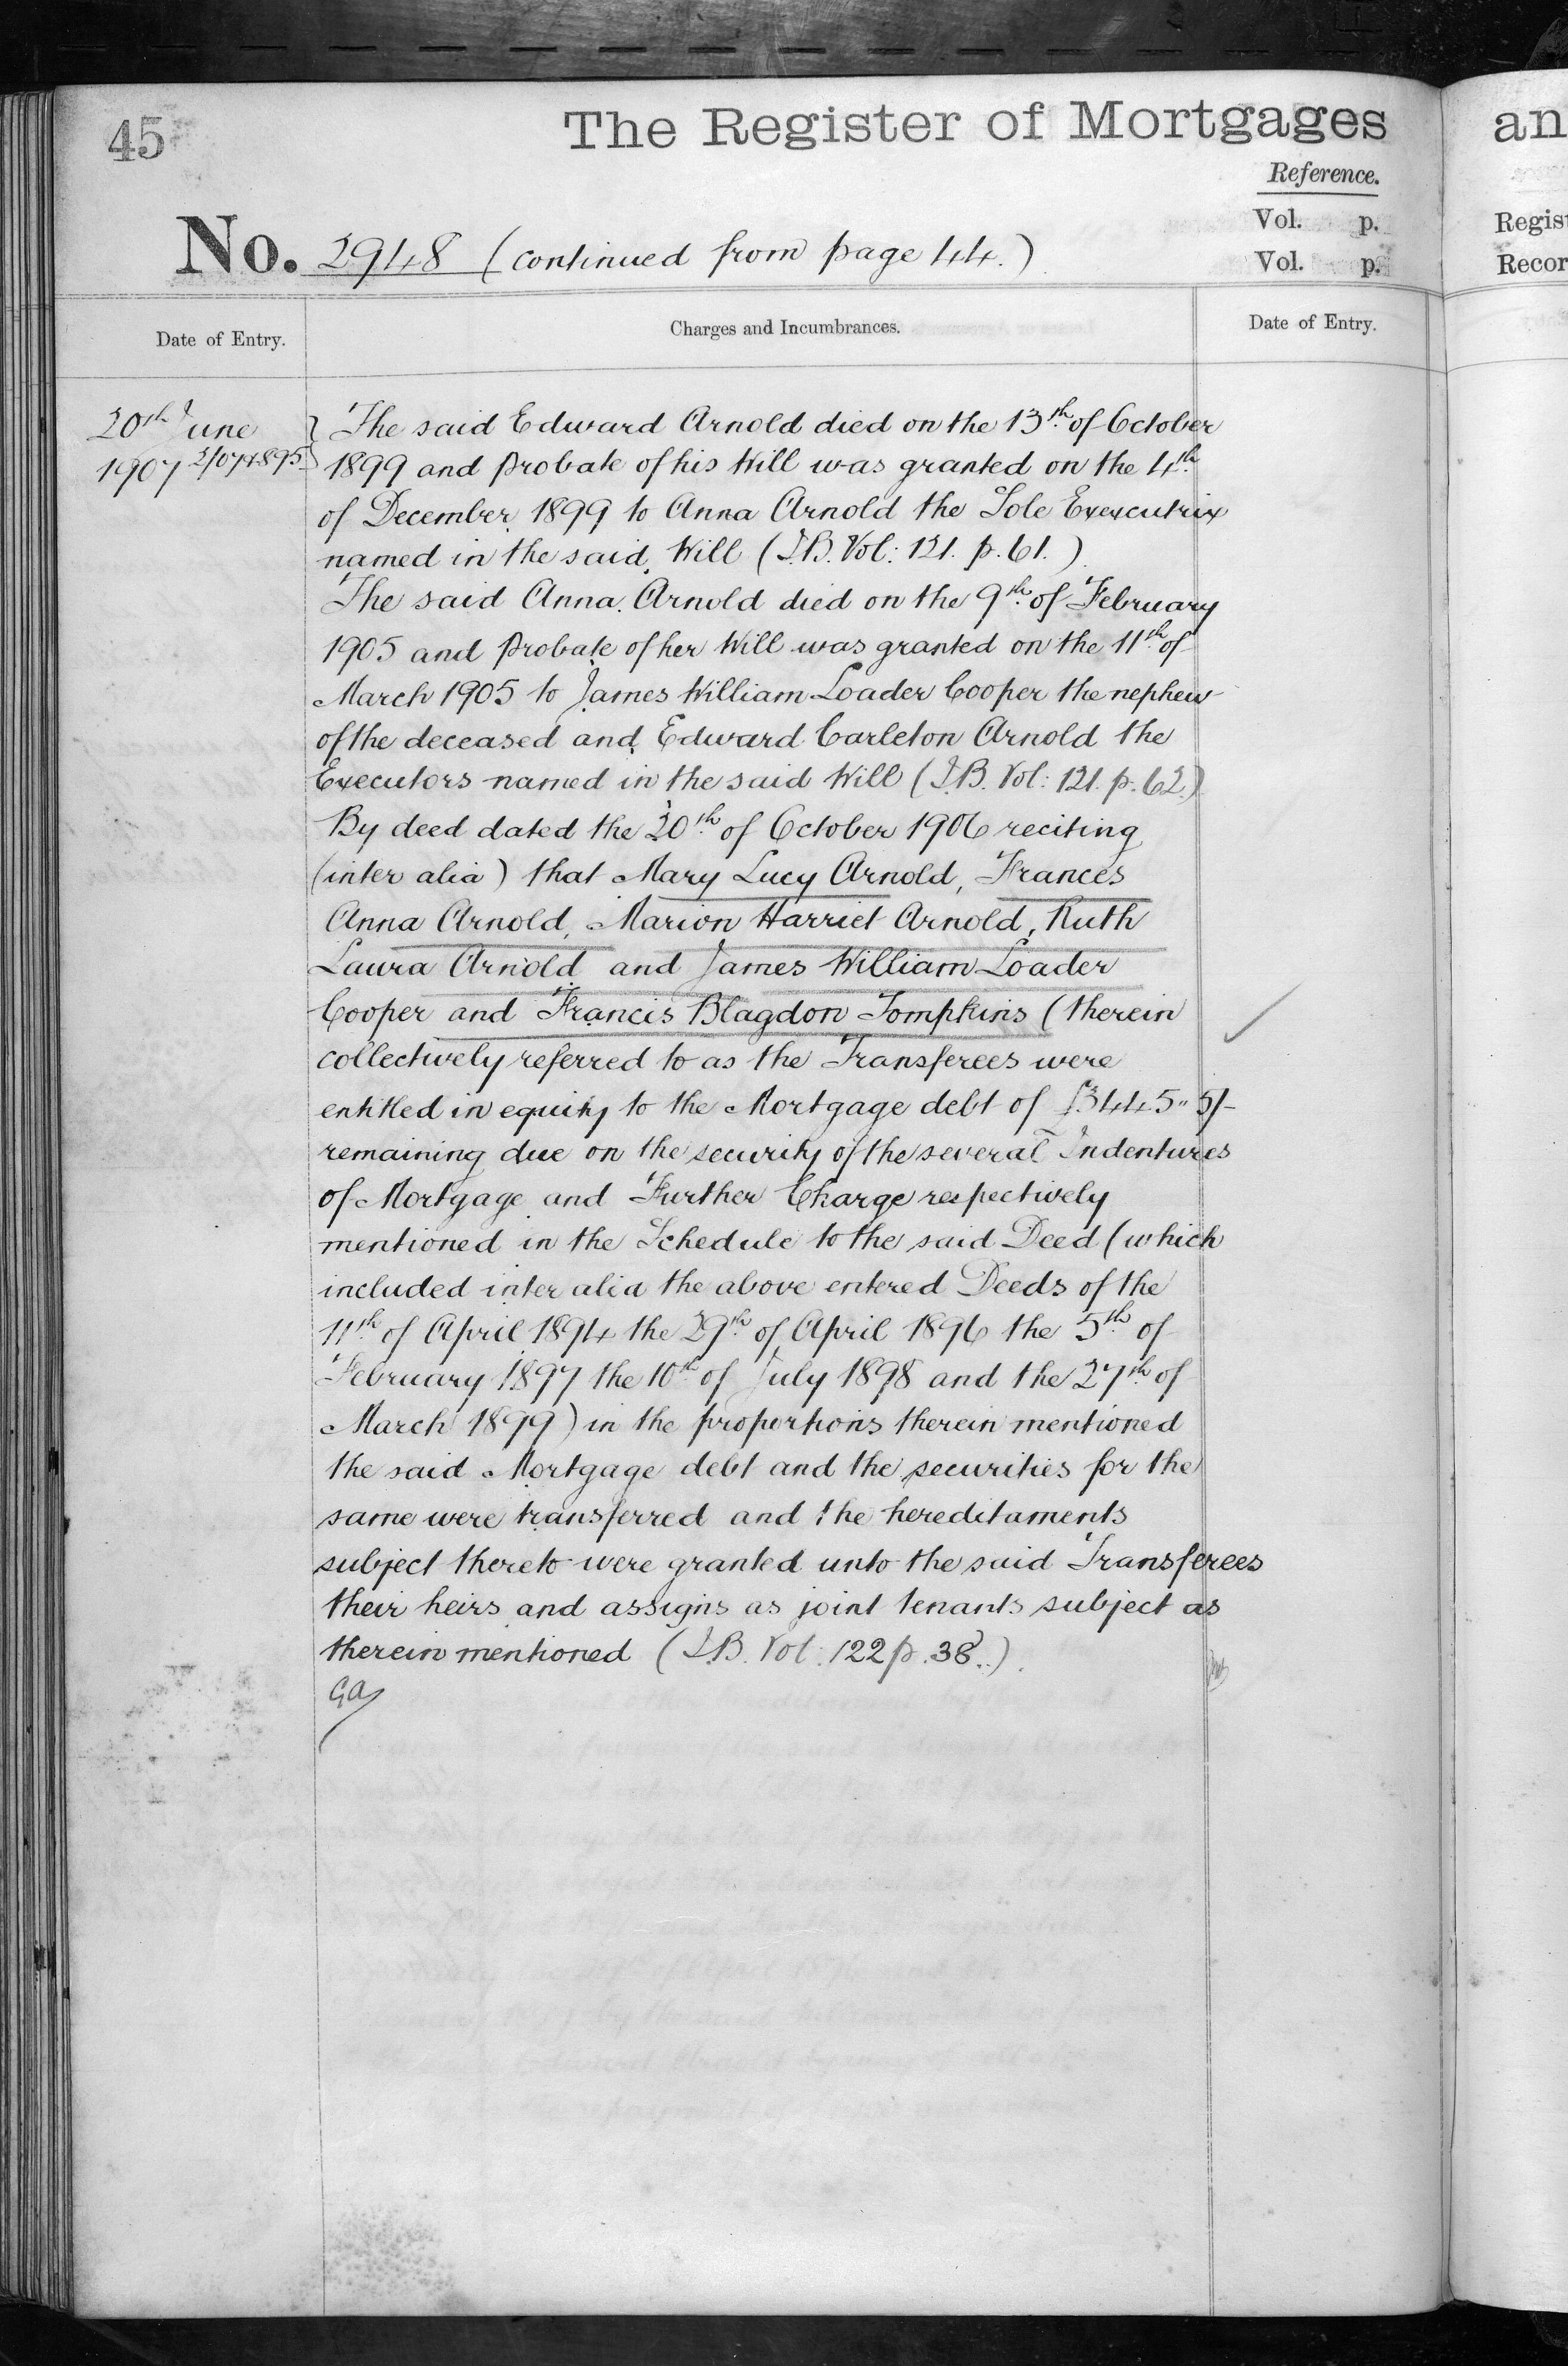 45
The Register of Mortgages
an
Reference.
Vol. p.
Vol. p.
Regis
Recor
No. 2948 (continued from page 44.)
Date of Entry.
Charges and Incumbrances.
Date of Entry.
20th June
1907
The said Edward Arnold died on the 13th of October
1899 and Probate of his Will was granted on the 4th
of December 1899 to Anna Arnold the Sole Exexcutrix
named in the said Will (I.B. Vol: 121. p. 61.)
The said Anna Arnold died on the 9th of February
1905 and Probate of her Will was granted on the 11th of
March 1905 to James William Loader Cooper the nephew
of the deceased and Edward Carleton Arnold the
Executors named in the said Will (I.B. Vol: 121. p. 62.)
By deed dated the 20th of October 1906 reciting
(inter alia) that Mary Lucy Arnold, Frances
Anna Arnold, Marion Harriet Arnold, Ruth
Laura Arnold and James William Loader
Cooper and Francis Blagdon Tompkins (therein
collectively referred to as the Transferees were
entitled in equity to the Mortgage debt of £3445" 5/-
remaining due on the security of the several Indentures
of Mortgage and Further Charge respectively
mentioned in the Schedule to the said Deed (which
included inter alia the above entered Deeds of the
11th of April 1894 the 29th of April 1896 the 5th of
February 1897 the 10th of July 1898 and the 27th of
March 1899) in the proportions therein mentioned
the said Mortgage debt and the securities for the
same were transferred and the hereditaments
subject thereto were granted unto the said Transferees
their heirs and assigns as joint tenants subject as
therein mentioned (I.B. Vol: 122 p. 38.)